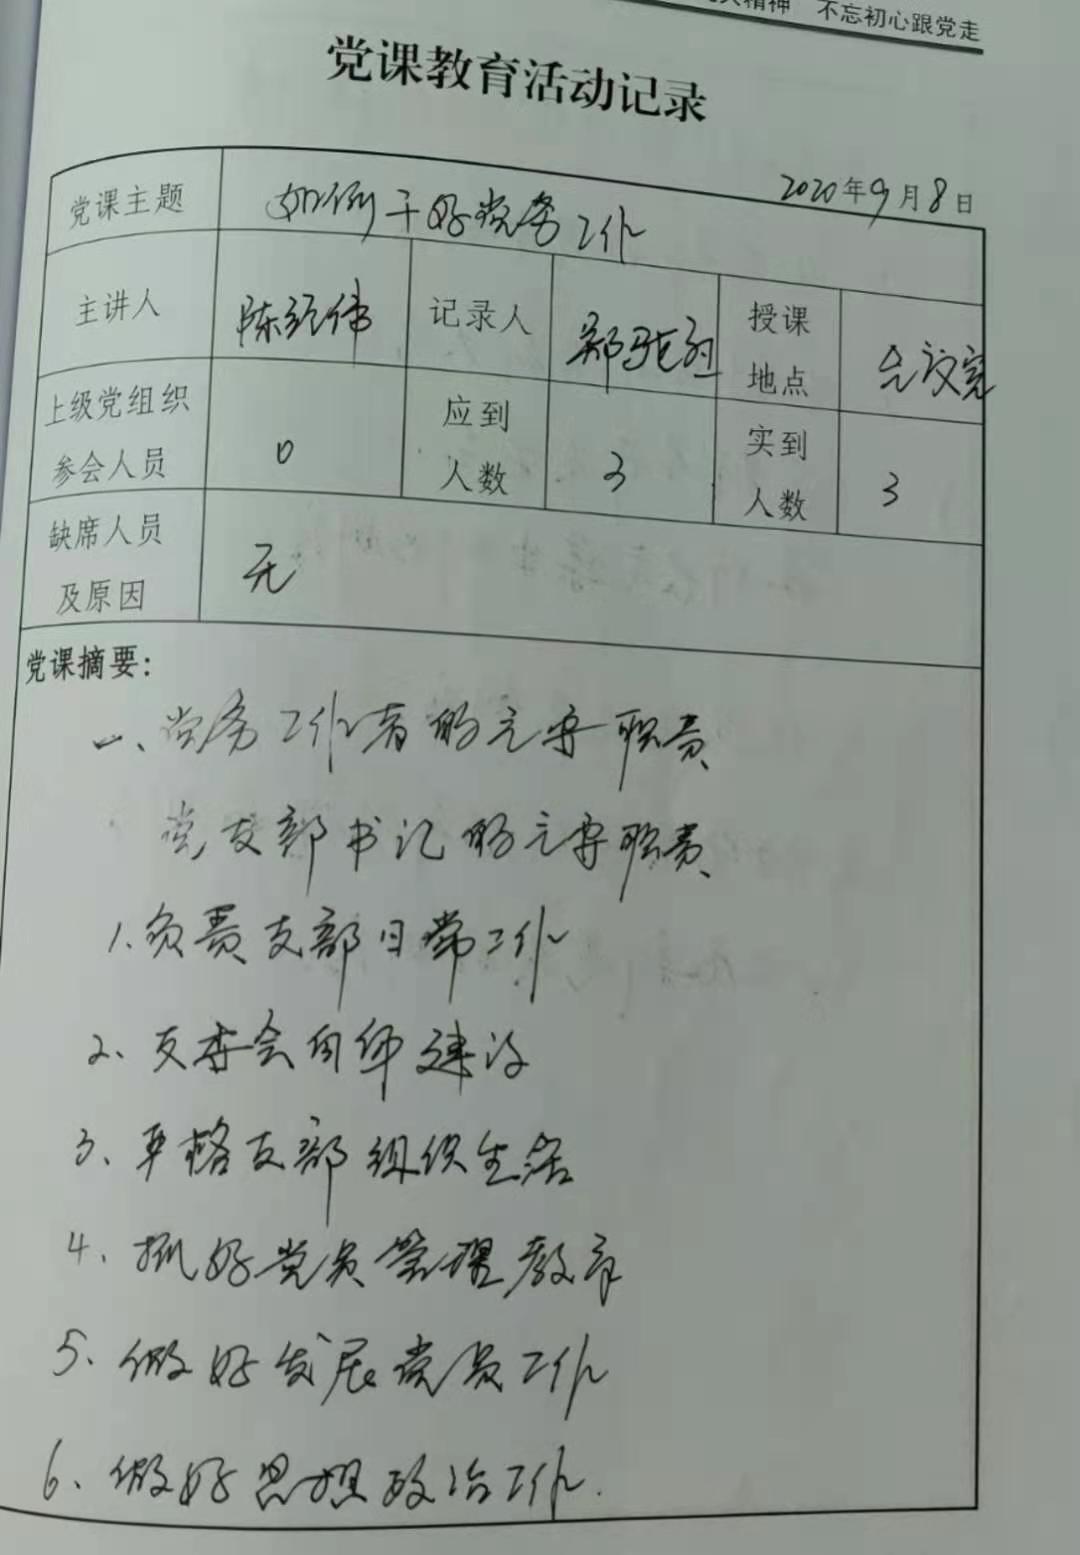 精神 不忘初心跟党走
党课教育活动记录
2020年9月8日
党课主题 如何干好党务工作
主讲人 陈经伟 记录人 郑 授课地点 会议室
上级党组织参会人员 0 应到人数 3 实到人数 3
缺席人员及原因 无
党课摘要:
一、党务工作者的主要职责
党支部书记的主要职责
1.负责支部日常工作
2、支委会自身建设
3、严格支部组织生活
4、抓好党员管理教育
5、做好发展党员工作
6、做好思想政治工作.